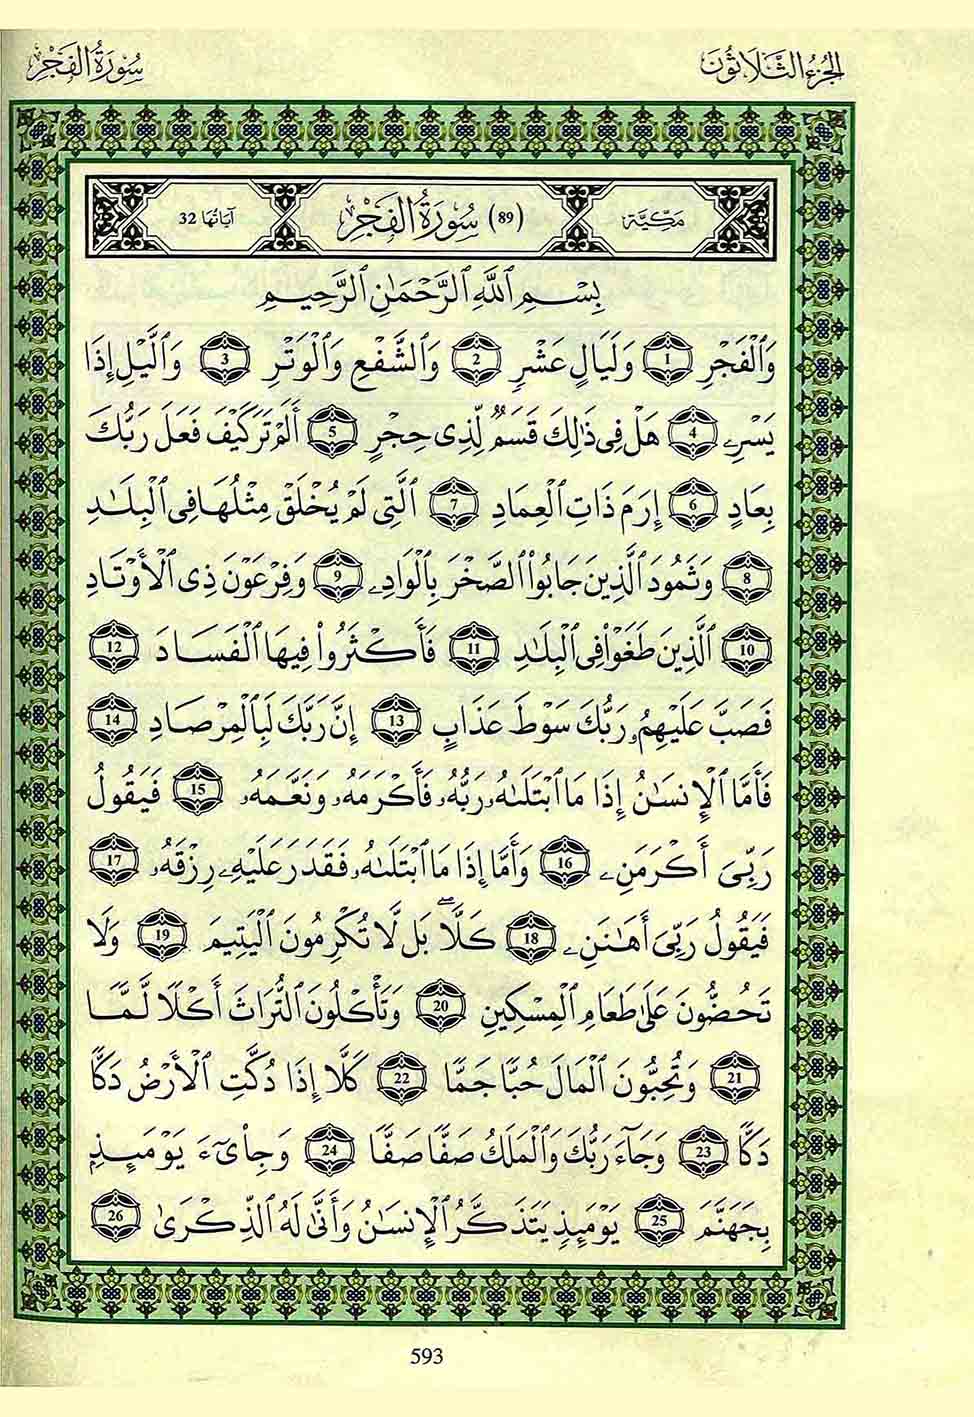 الجُزْءُ الثَّلَاثُونَ
سُورَةُ الفَجْرِ
مَكِّيَّة (89) سُورَةُ الفَجْرِ آيَاتُهَا 32
بِسْمِ ٱللَّهِ ٱلرَّحْمَٰنِ ٱلرَّحِيمِ
وَٱلْفَجْرِ 1 وَلَيَالٍ عَشْرٍ 2 وَٱلشَّفْعِ وَٱلْوَتْرِ 3 وَٱلَّيْلِ إِذَا
يَسْرِۦ 4 هَلْ فِى ذَٰلِكَ قَسَمٌ لِّذِى حِجْرٍ 5 أَلَمْ تَرَ كَيْفَ فَعَلَ رَبُّكَ
بِعَادٍ 6 إِرَمَ ذَاتِ ٱلْعِمَادِ 7 ٱلَّتِى لَمْ يُخْلَقْ مِثْلُهَا فِى ٱلْبِلَٰدِ
8 وَثَمُودَ ٱلَّذِينَ جَابُوا۟ ٱلصَّخْرَ بِٱلْوَادِۦ 9 وَفِرْعَوْنَ ذِى ٱلْأَوْتَادِ
10 ٱلَّذِينَ طَغَوْا۟ فِى ٱلْبِلَٰدِ 11 فَأَكْثَرُوا۟ فِيهَا ٱلْفَسَادَ 12
فَصَبَّ عَلَيْهِمُۥ رَبُّكَ سَوْطَ عَذَابٍ 13 إِنَّ رَبَّكَ لَبِٱلْمِرْصَادِ 14
فَأَمَّا ٱلْإِنسَٰنُ إِذَا مَا ٱبْتَلَىٰهُ رَبُّهُۥ فَأَكْرَمَهُۥ وَنَعَّمَهُۥ 15 فَيَقُولُ
رَبِّىَ أَكْرَمَنِۦ 16 وَأَمَّا إِذَا مَا ٱبْتَلَىٰهُ فَقَدَرَ عَلَيْهِۦ رِزْقَهُۥ 17
فَيَقُولُ رَبِّىَ أَهَٰنَنِۦ 18 كَلَّا ۖ بَل لَّا تُكْرِمُونَ ٱلْيَتِيمَ 19 وَلَا
تَحُضُّونَ عَلَىٰ طَعَامِ ٱلْمِسْكِينِ 20 وَتَأْكُلُونَ ٱلتُّرَاثَ أَكْلًا لَّمًّا
21 وَتُحِبُّونَ ٱلْمَالَ حُبًّا جَمًّا 22 كَلَّا إِذَا دُكَّتِ ٱلْأَرْضُ دَكًّا
دَكًّا 23 وَجَآءَ رَبُّكَ وَٱلْمَلَكُ صَفًّا صَفًّا 24 وَجِا۟ىٓءَ يَوْمَئِذٍۭ
بِجَهَنَّمَ 25 يَوْمَئِذٍ يَتَذَكَّرُ ٱلْإِنسَٰنُ وَأَنَّىٰ لَهُ ٱلذِّكْرَىٰ 26
593